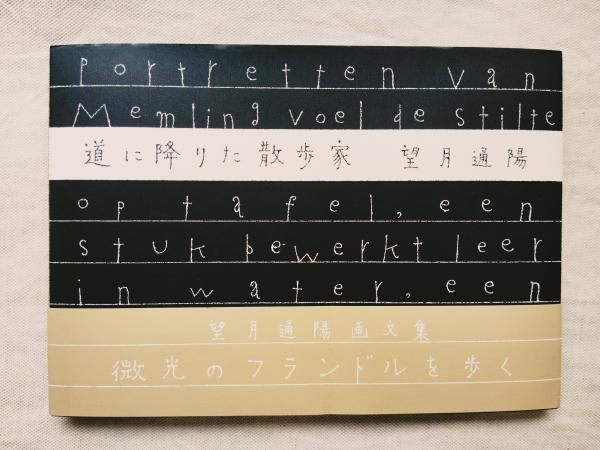 portretten van
Memling voel de stilte
道に降りた散歩家 望月通陽
op tafel, een
stuk bewerkt leer
in water, een
望月通陽画文集
微光のフランドルを歩く